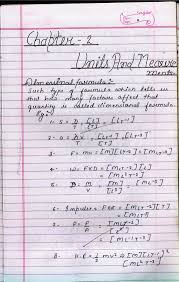 Chapter-2
Units And Measure
ments
Dimensional formula:-
Such type of formula which tells us
that how many factors affect that
quantity is called dimensional formula.
Eg:-
1. S = D/T = [L]/[T] = [LT-1]
3. F = ma = [M] [LT-2] = [MLT-2]
4. W = F×D = [MLT-2] [L]
= [ML2T-2]
5. D = M/V = [M]/[L3]
6. Impulse = F×t = [MLT-2][T]
7. P = F/A = [MLT-2]/[L2]
= [ML-1T-2]
8. K.E = 1/2 mv2 = [M] [LT-1]2
= [ML2T-2]